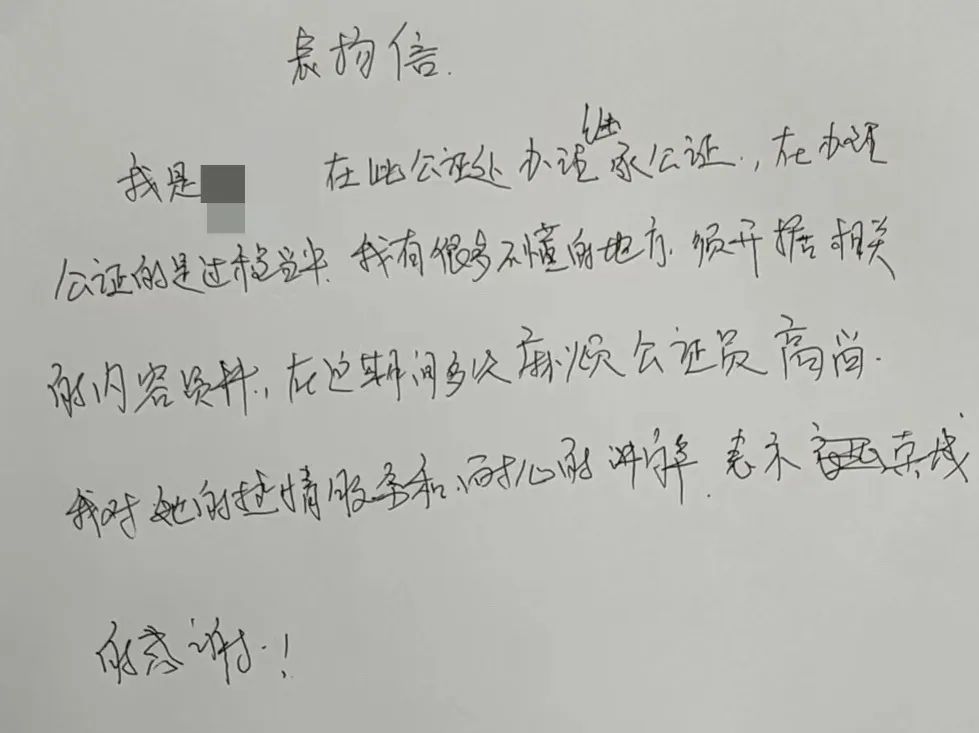 表扬信.
我是 在此公证处办理继承公证.,在办理
公证的是过程当中.我有很多不懂的地方.须开据相关
的内容资料.,在这期间多次麻烦公证员高尚.
我对她的热情服务和耐心的讲解.表示 衷诚
的感谢.!